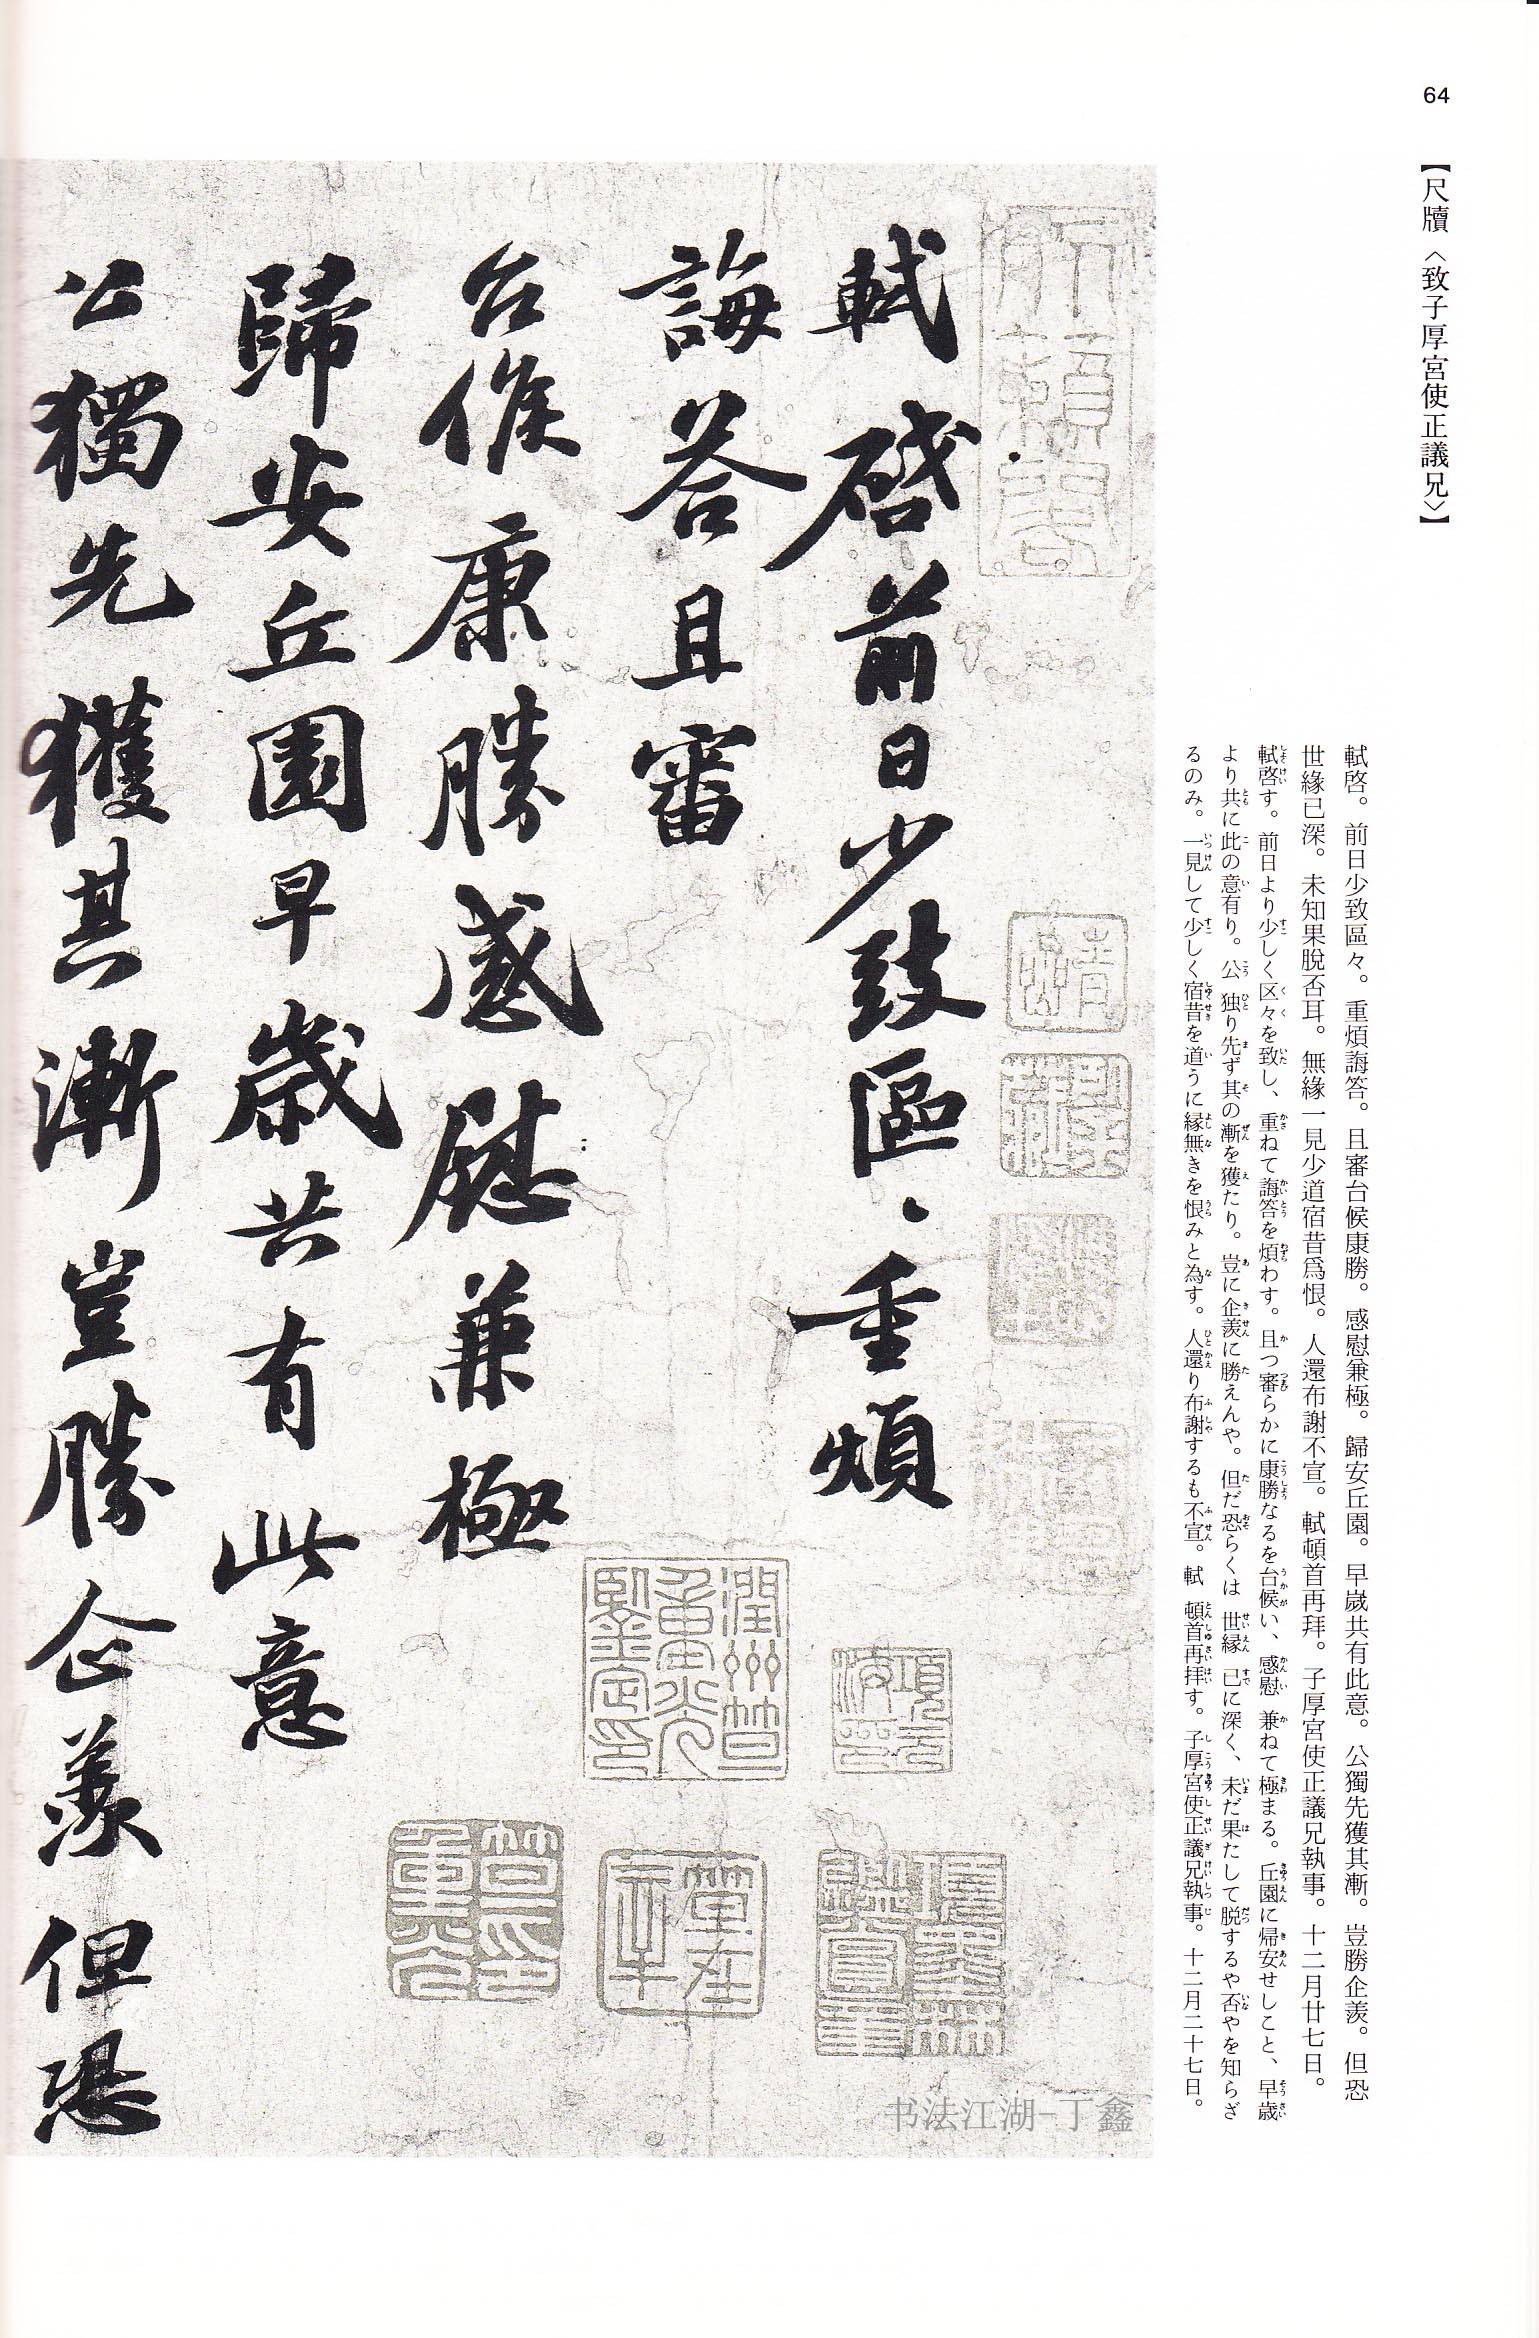 64
【尺牘〈致子厚宮使正議兄〉】
軾啓。前日少致區々。重煩誨答。且審台候康勝。感慰兼極。歸安丘園。早歲共有此意。公獨先獲其漸。豈勝企羨。但恐
世緣已深。未知果脫否耳。無緣一見少道宿昔爲恨。人還布謝不宣。軾頓首再拜。子厚宮使正議兄執事。十二月廿七日。
軾啓す。前日より少しく区々を致し、重ねて誨答を煩わす。且つ審らかに康勝なるを台候い、感慰 兼ねて極まる。丘園に帰安せしこと、早歳
より共に此の意有り。公 独り先ず其の漸を獲たり。豈に企羨に勝えんや。但だ恐らくは 世縁 已に深く、未だ果たして脱するや否やを知らざ
るのみ。一見して少しく宿昔を道うに縁無きを恨みと為す。人還り布謝するも不宣。軾 頓首再拝す。子厚宮使正議兄執事。十二月二十七日。
軾啓前日少致區、重煩
誨答且審
台候康勝感慰兼極
歸安丘園早歲共有此意
公獨先獲其漸豈勝企羨但恐
书法江湖-丁鑫